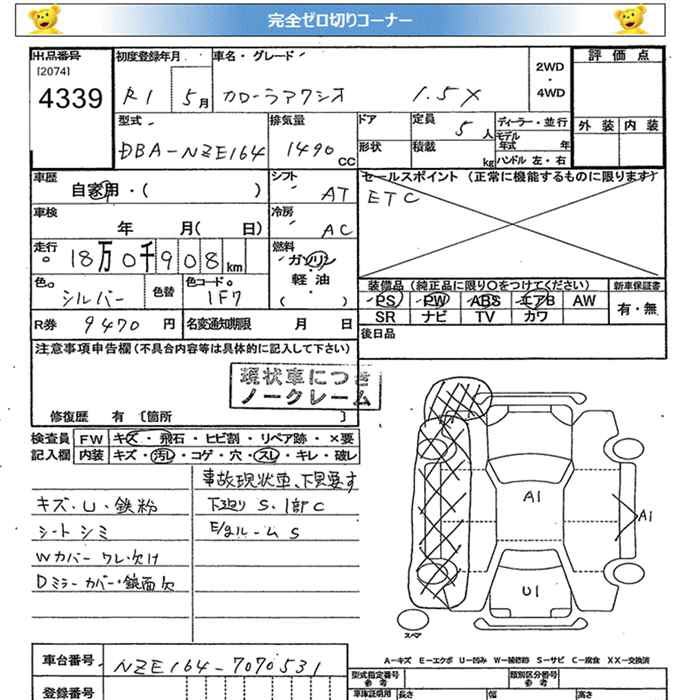 完全ゼロ切りコーナー
出品番号 初度登録年月 車名・グレード 2WD・4WD 評価点
[2074]
4339 R1 5月 カローラアクシオ 1.5X 外装 内装
型式 排気量 ドア 定員 5人 ディーラー・並行
DBA-NZE164 1490 CC 形状 積載 kg モデル年式 年
ハンドル 左・右
車歴 自家用・( ) シフト AT セールスポイント (正常に機能するものに限ります)
ETC
車検 年 月( 日) 冷房 AC
走行 18万0千908km 燃料 ガソリン
軽油
( )
色 シルバー 色替 色コード 1F7
装備品 (純正品に限り○をつけてください) 新車保証書
PS PW ABS エアB AW 有・無
SR ナビ TV カワ
R券 9470円 名変通知期限 月 日 後日品
注意事項申告欄(不具合内容等は具体的に記入して下さい)
現状車につき
ノークレーム
修復歴 有 〔箇所 〕
検査員 FW キズ・飛石・ヒビ割・リペア跡・×要
記入欄 内装 キズ・汚レ・コゲ・穴・スレ・キレ・破レ
事故現状車、下見要す
キズ・U・鉄粉 下廻り S.1部C
シートシミ E/gルームS
Wカバー ワレ・欠け
Dミラーカバー・鏡面欠
A1
A1
U1
スペア
A-キズ E-エクボ U-凹み W-補修跡 S-サビ C-腐食 XX-交換済
車台番号 NZE164-7070531
型式指定番号 参考 類別区分番号 参考
登録番号 車庫証明用 長さ 幅 高さ